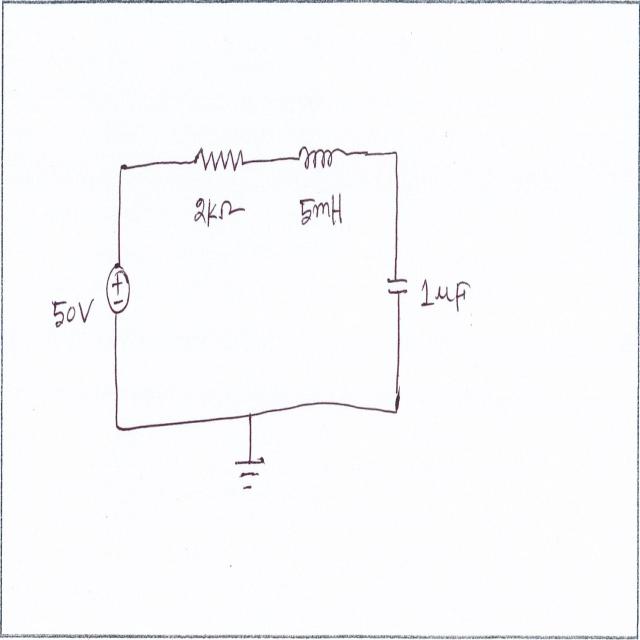 2kΩ 5mH
50V
1μF